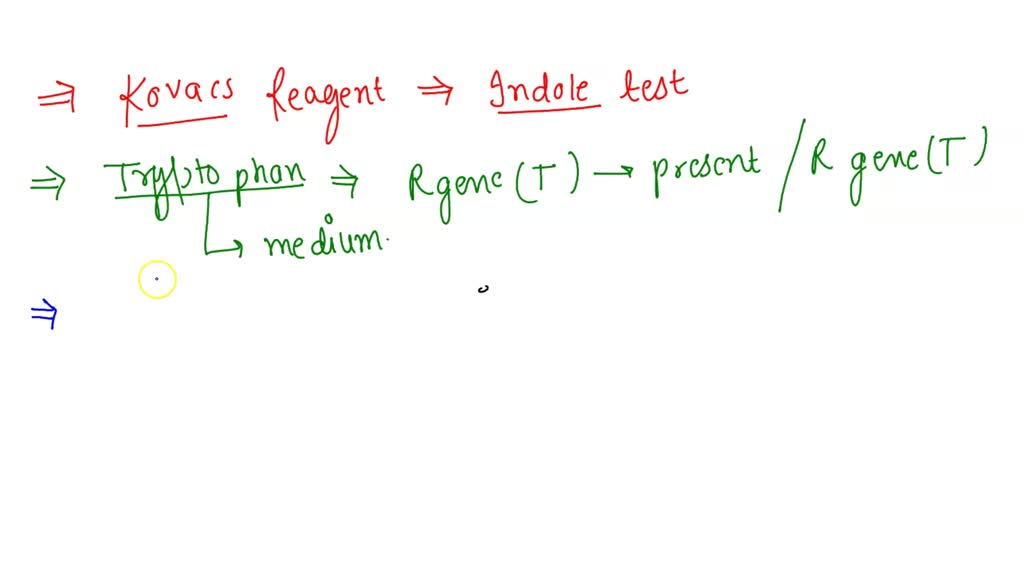 ⇒ Kovacs Reagent ⇒ Indole test
⇒ Tryptophan ⇒ R gene (T) → present / R gene (T)
↳ medium.
⇒